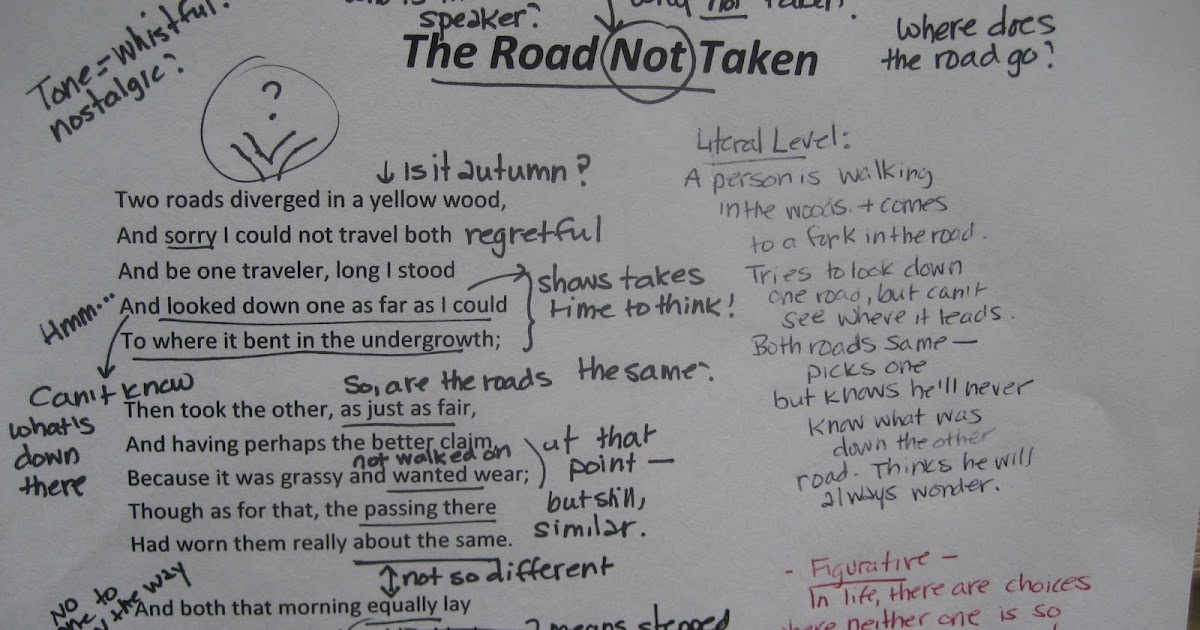 Tone = whistful?
nostalgic?
speaker?
not taken?
The Road Not Taken
where does
the road go?
?
↓ Is it autumn?
Two roads diverged in a yellow wood,
And sorry I could not travel both
regretful
And be one traveler, long I stood
And looked down one as far as I could
To where it bent in the undergrowth;
shows takes
time to think!
Hmm...
Can't know
what's
down
there
So, are the roads the same?
Then took the other, as just as fair,
And having perhaps the better claim,
not walked on
Because it was grassy and wanted wear;
Though as for that, the passing there
Had worn them really about the same.
at that
point —
but still,
similar.
not so different
And both that morning equally lay
No
to
the way
means stepped
Literal Level:
A person is walking
in the woods. + comes
to a fork in the road.
Tries to look down
one road, but can't
see where it leads.
Both roads same —
picks one
but knows he'll never
know what was
down the other
road. Thinks he will
always wonder.
- Figurative -
In life, there are choices
where neither one is so